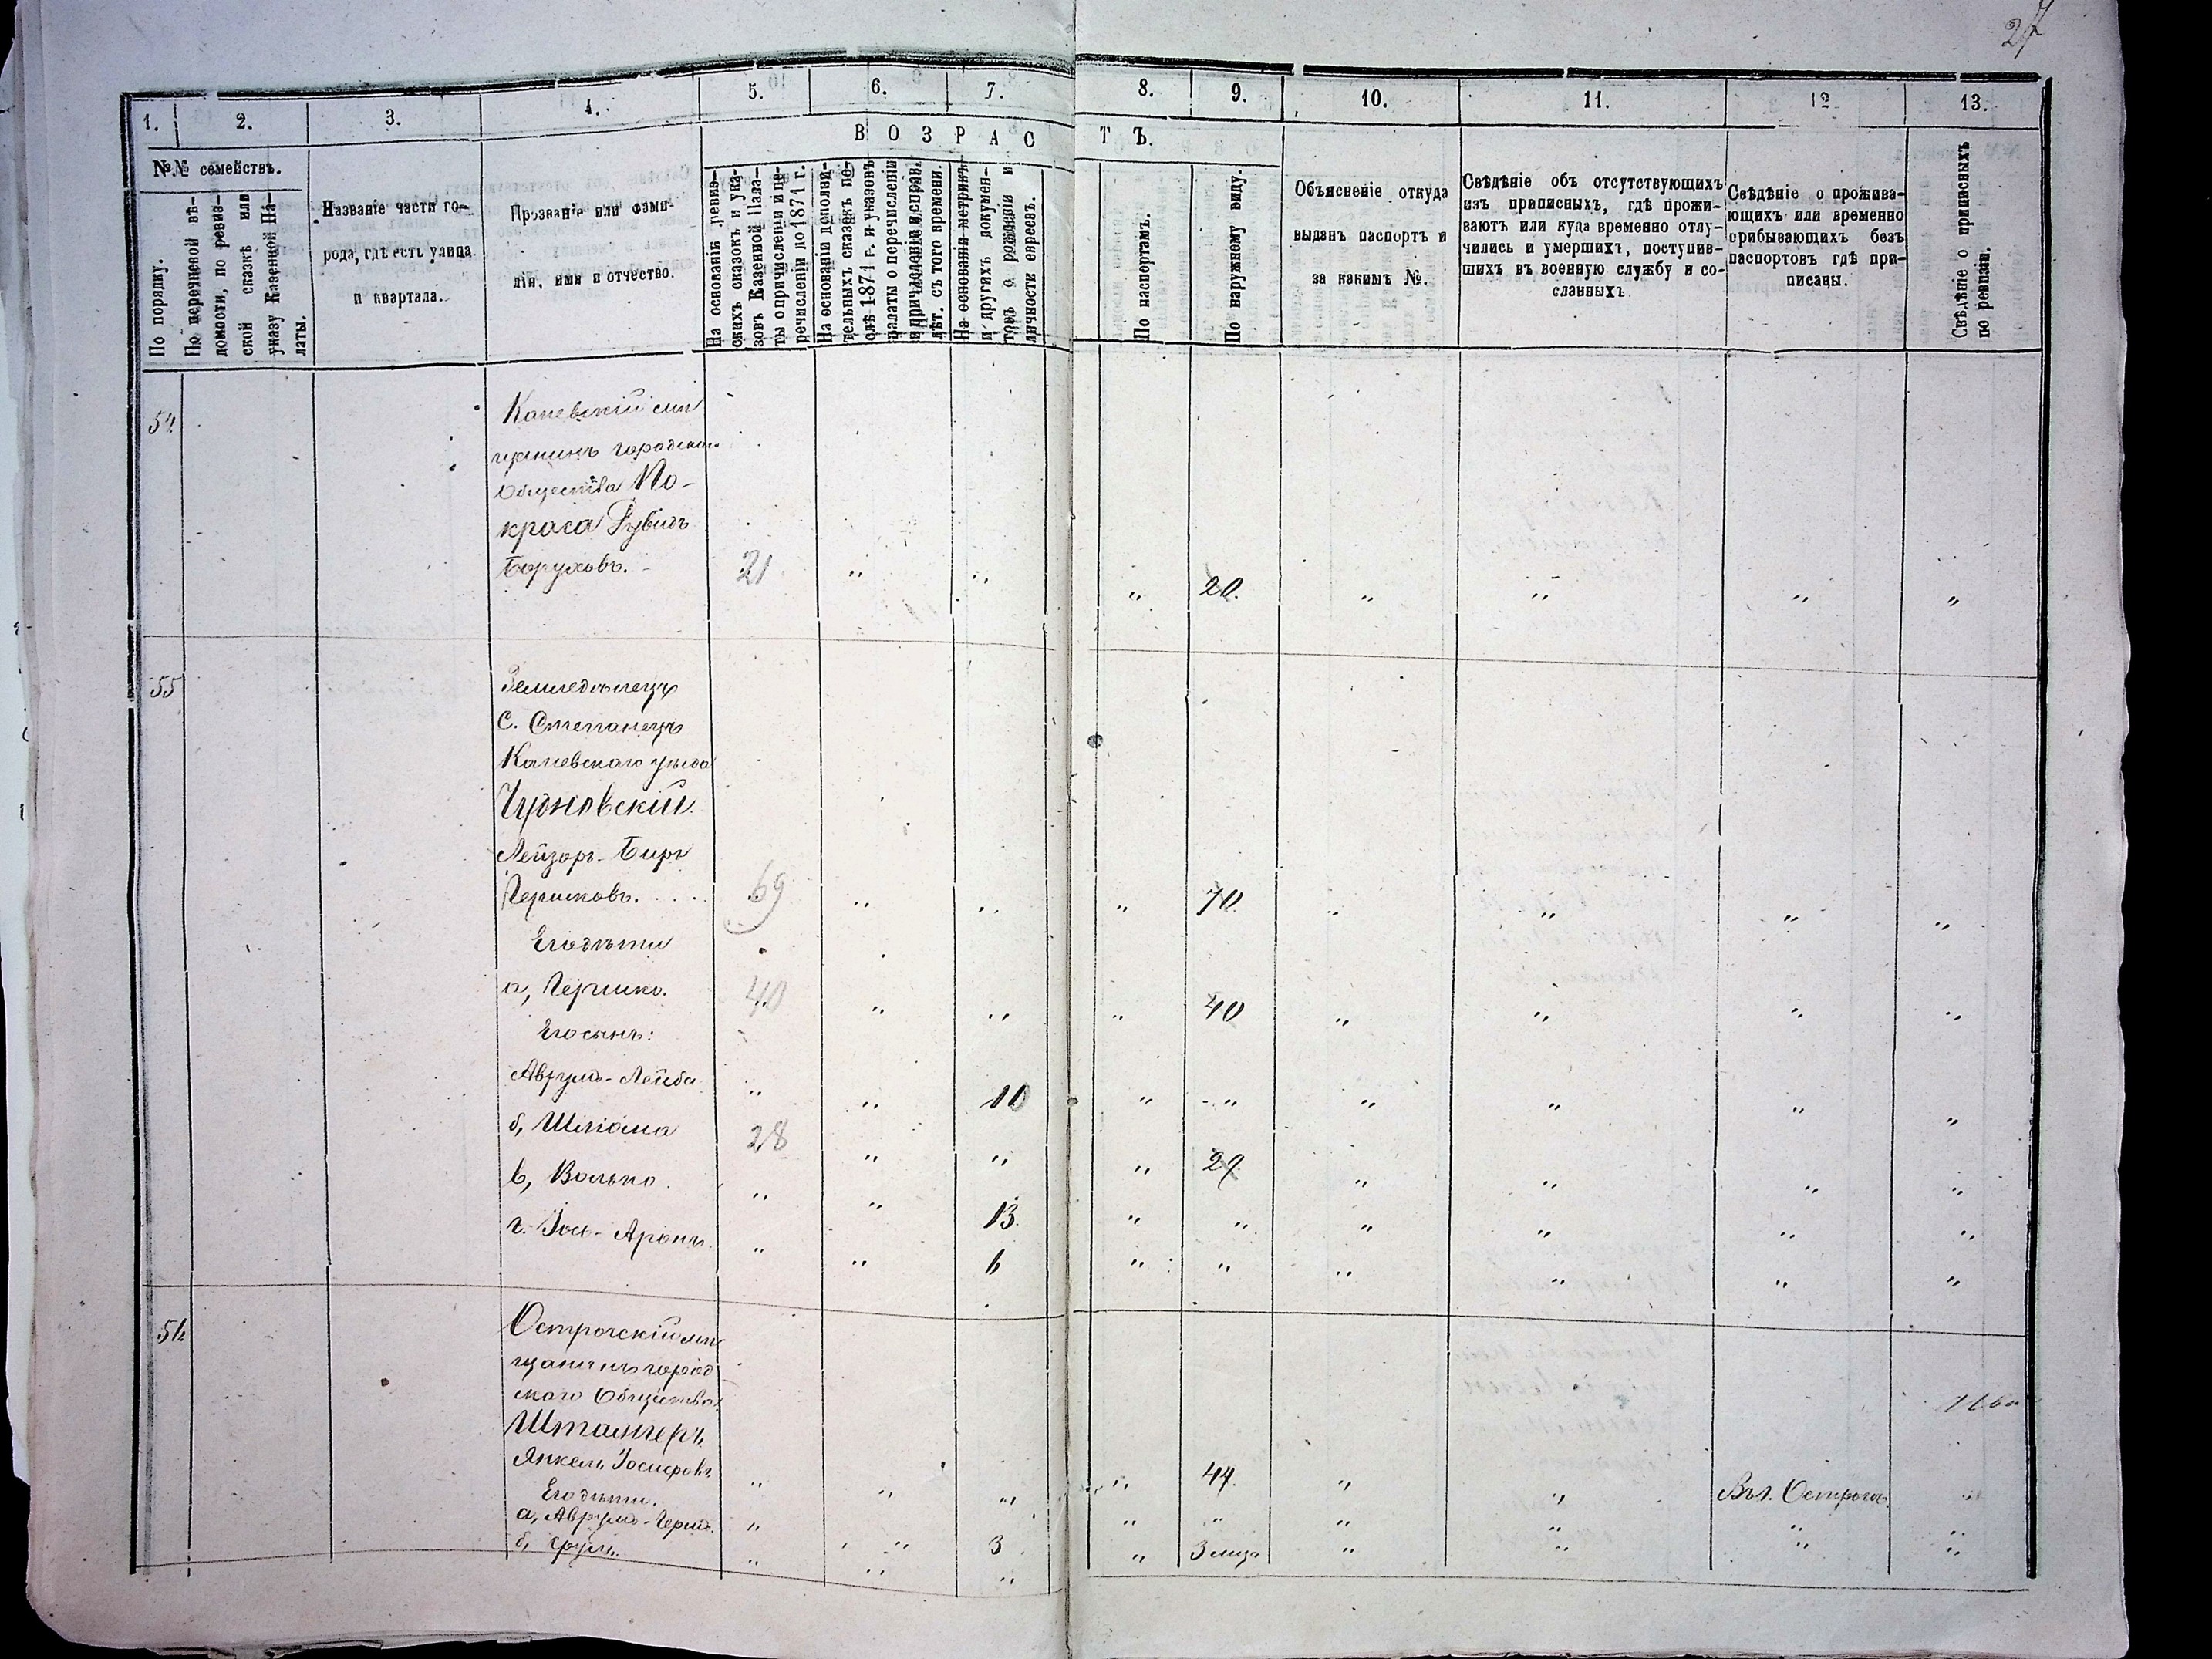 27
1. 2. 3. 4. 5. 6. 7. 8. 9. 10. 11. 12 13.
В О З Р А С Т Ъ.
№№ семействъ.
По порядку.
По перечневой вѣ-
домости, по ревиз-
ской сказкѣ или
указу Казенной Па-
латы.
Названіе части го-
рода, гдѣ есть улица
и квартала.
Прозваніе или фами-
лія, имя и отчество.
На основаніи ревиз-
скихъ сказокъ и ука-
зовъ Казенной Пала-
ты о причисленіи и пе-
речисленіи до 1871 г.
На основаніи дополни-
тельныхъ сказокъ по-
слѣ 1871 г. и указовъ
палаты о перечисленіи
и причисленіи и справ.
лѣт. съ того времени.
На основаніи метрикъ
и другихъ докумен-
товъ о рожденіи и
личности евреевъ.
По паспортамъ.
По наружному виду.
Объясненіе откуда
выданъ паспортъ и
за какимъ №.
Свѣдѣніе объ отсутствующихъ
изъ приписныхъ, гдѣ прожи-
ваютъ или куда временно отлу-
чились и умершихъ, поступив-
шихъ въ военную службу и со-
сланныхъ
Свѣдѣніе о прожива-
ющихъ или временно
прибывающихъ безъ
паспортовъ гдѣ при-
писаны.
Свѣдѣніе о приписныхъ
по ревизіи.
54 Каневскій мѣ
щанинъ городскаго
Общества По-
краса Рувинъ
Боруховъ. 21 " " " 20. " " " "
55 Земледѣлецъ
С. Степанецъ
Каневскаго уѣзда
Чудновскій
Лейзоръ-Беръ
Гершковъ. . . . . 69 " " " 70. " " " "
Его дѣти
а, Гершко. 40 " " " 40 " " " "
Его сынъ:
Аврумъ-Лейба " " 10 " " " " " "
б, Шліома 28 " " " 29. " " " "
в, Волько. " " 13. " " " " " "
г. Іось-Аронъ. " " 6 " " " " " "
56 Острогскій мѣ
щанинъ город
скаго Общества
Штангеръ
Янкель Іосифовъ " " " " 44. " " Въ г. Острогѣ. "
Его дѣти.
а, Аврумъ-Герш. " " 3 " " " " " "
б, Сруль. " " " " 3 мѣся " " " "